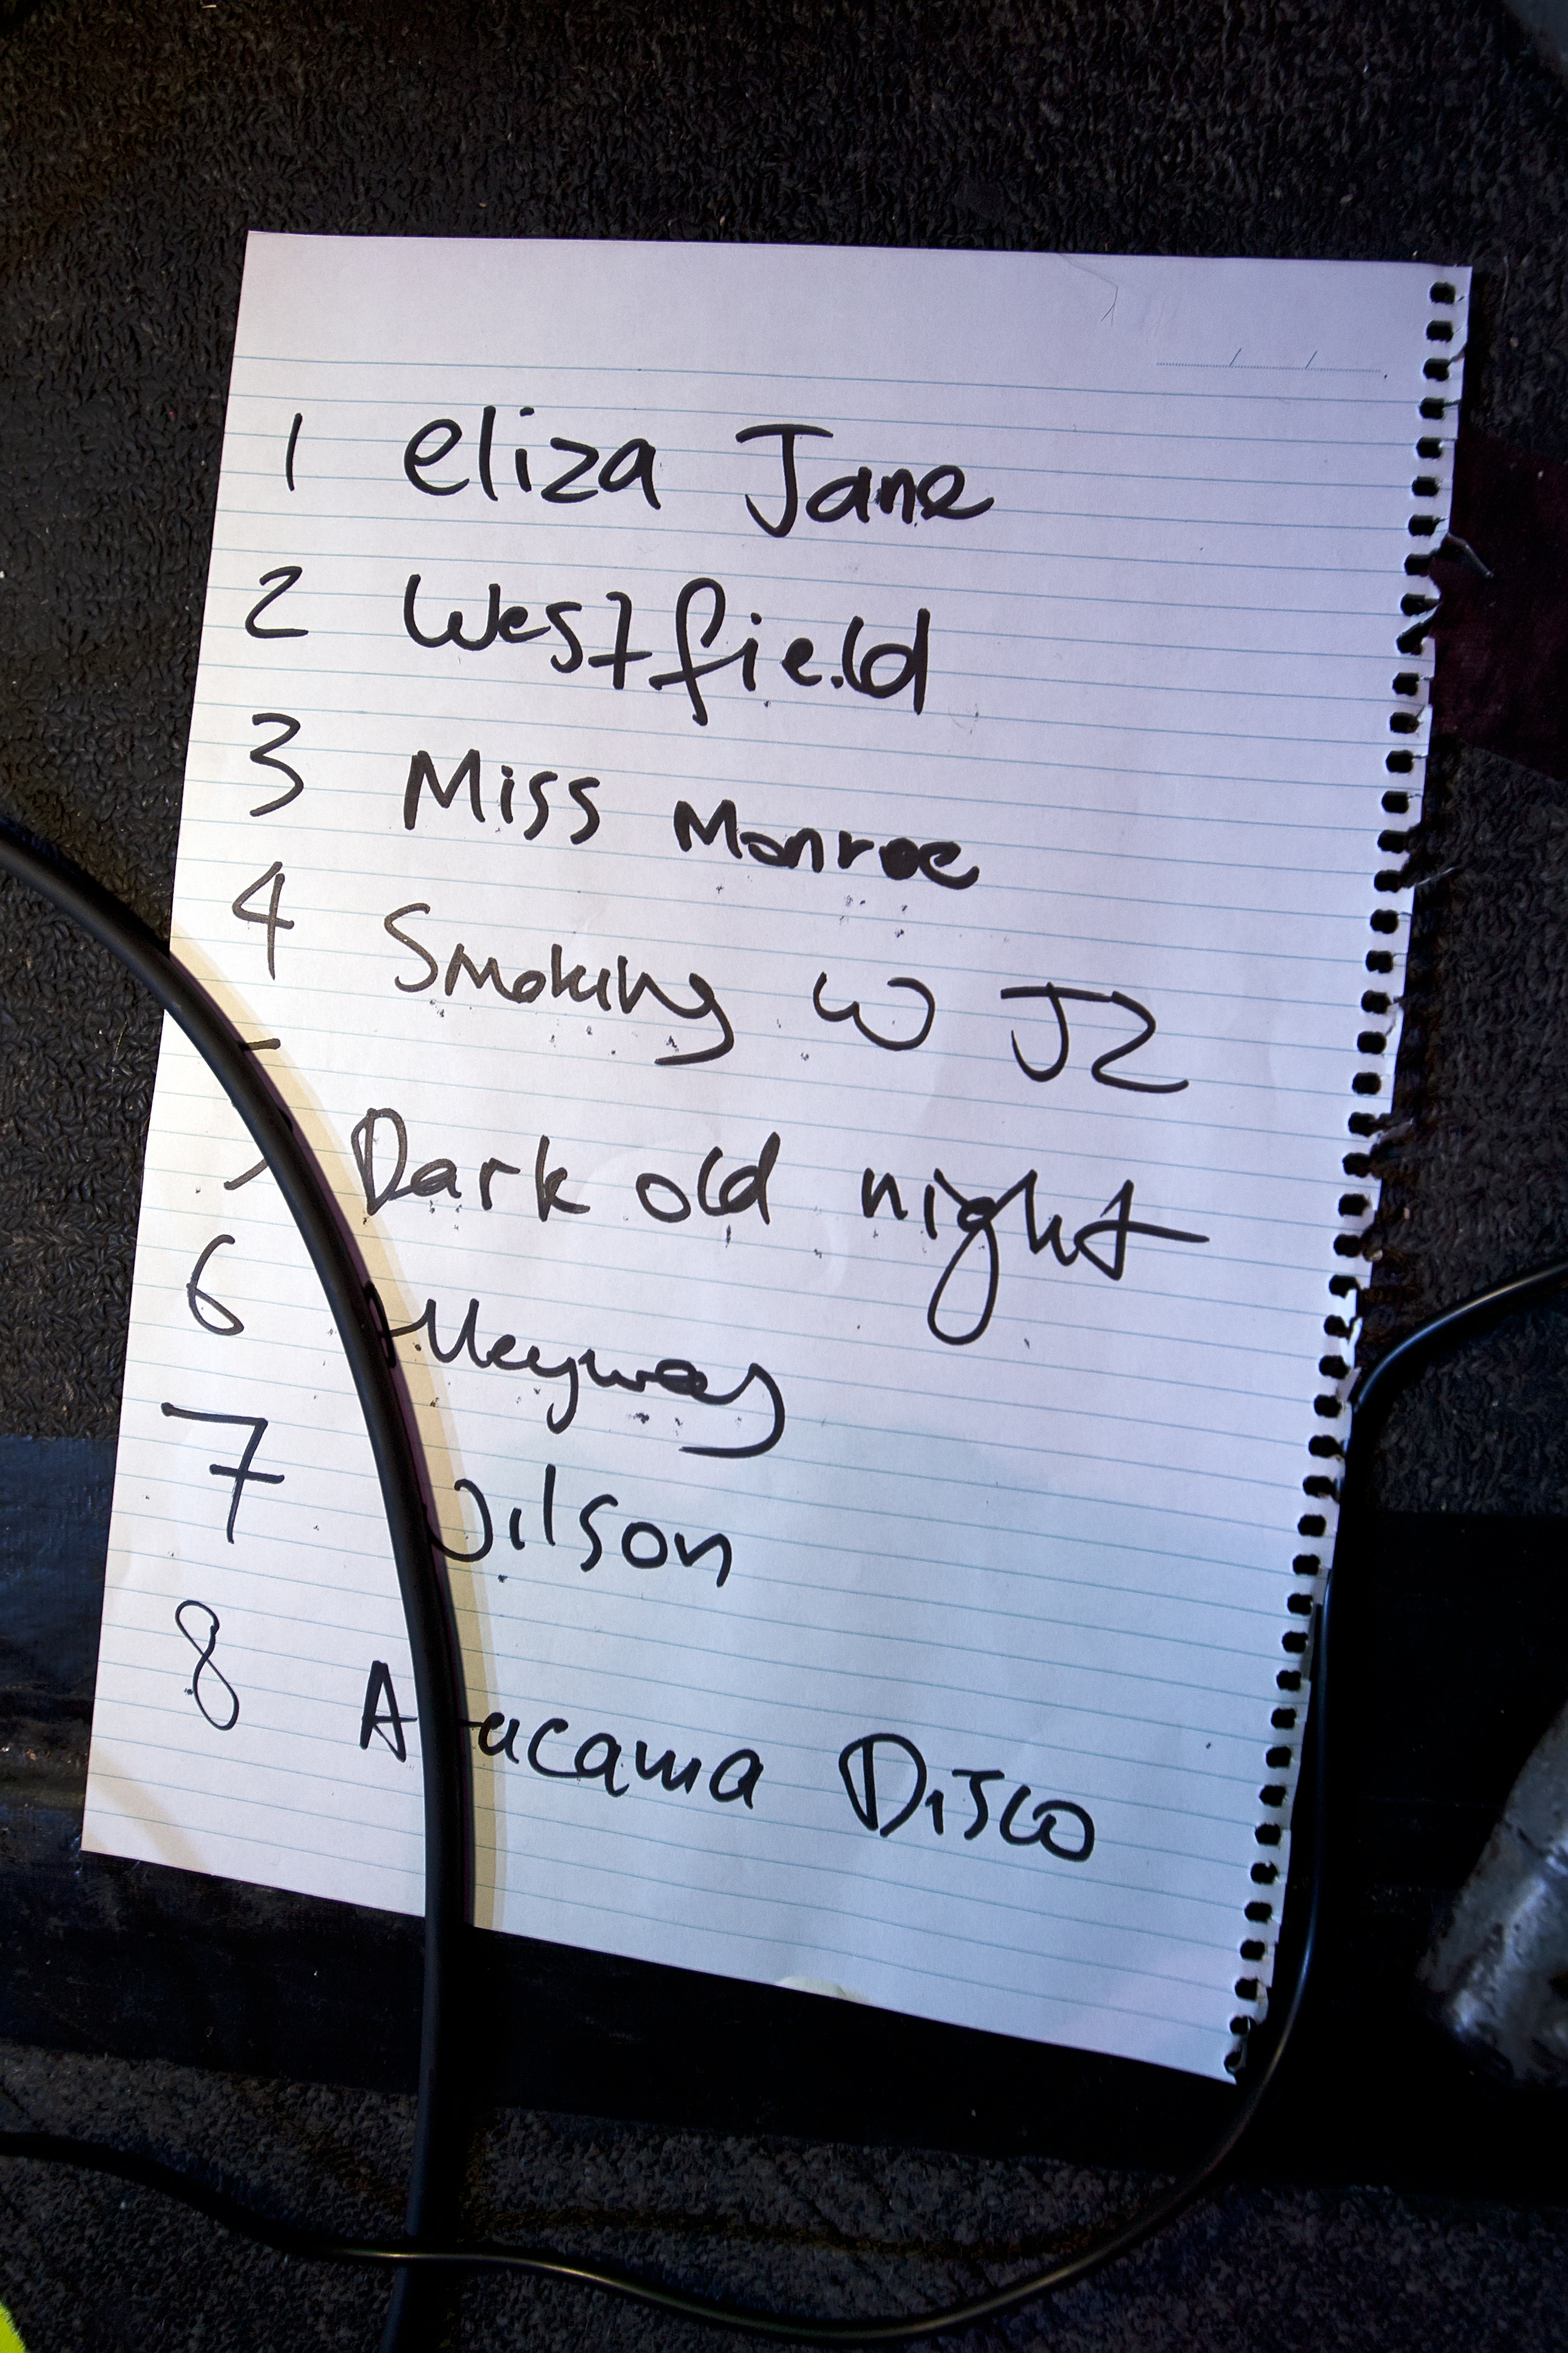 1 eliza Jane
2 Westfield
3 Miss Monroe
4 Smoking W JZ
5 Dark old night
6 alleyway
7 Wilson
8 Atacama Disco